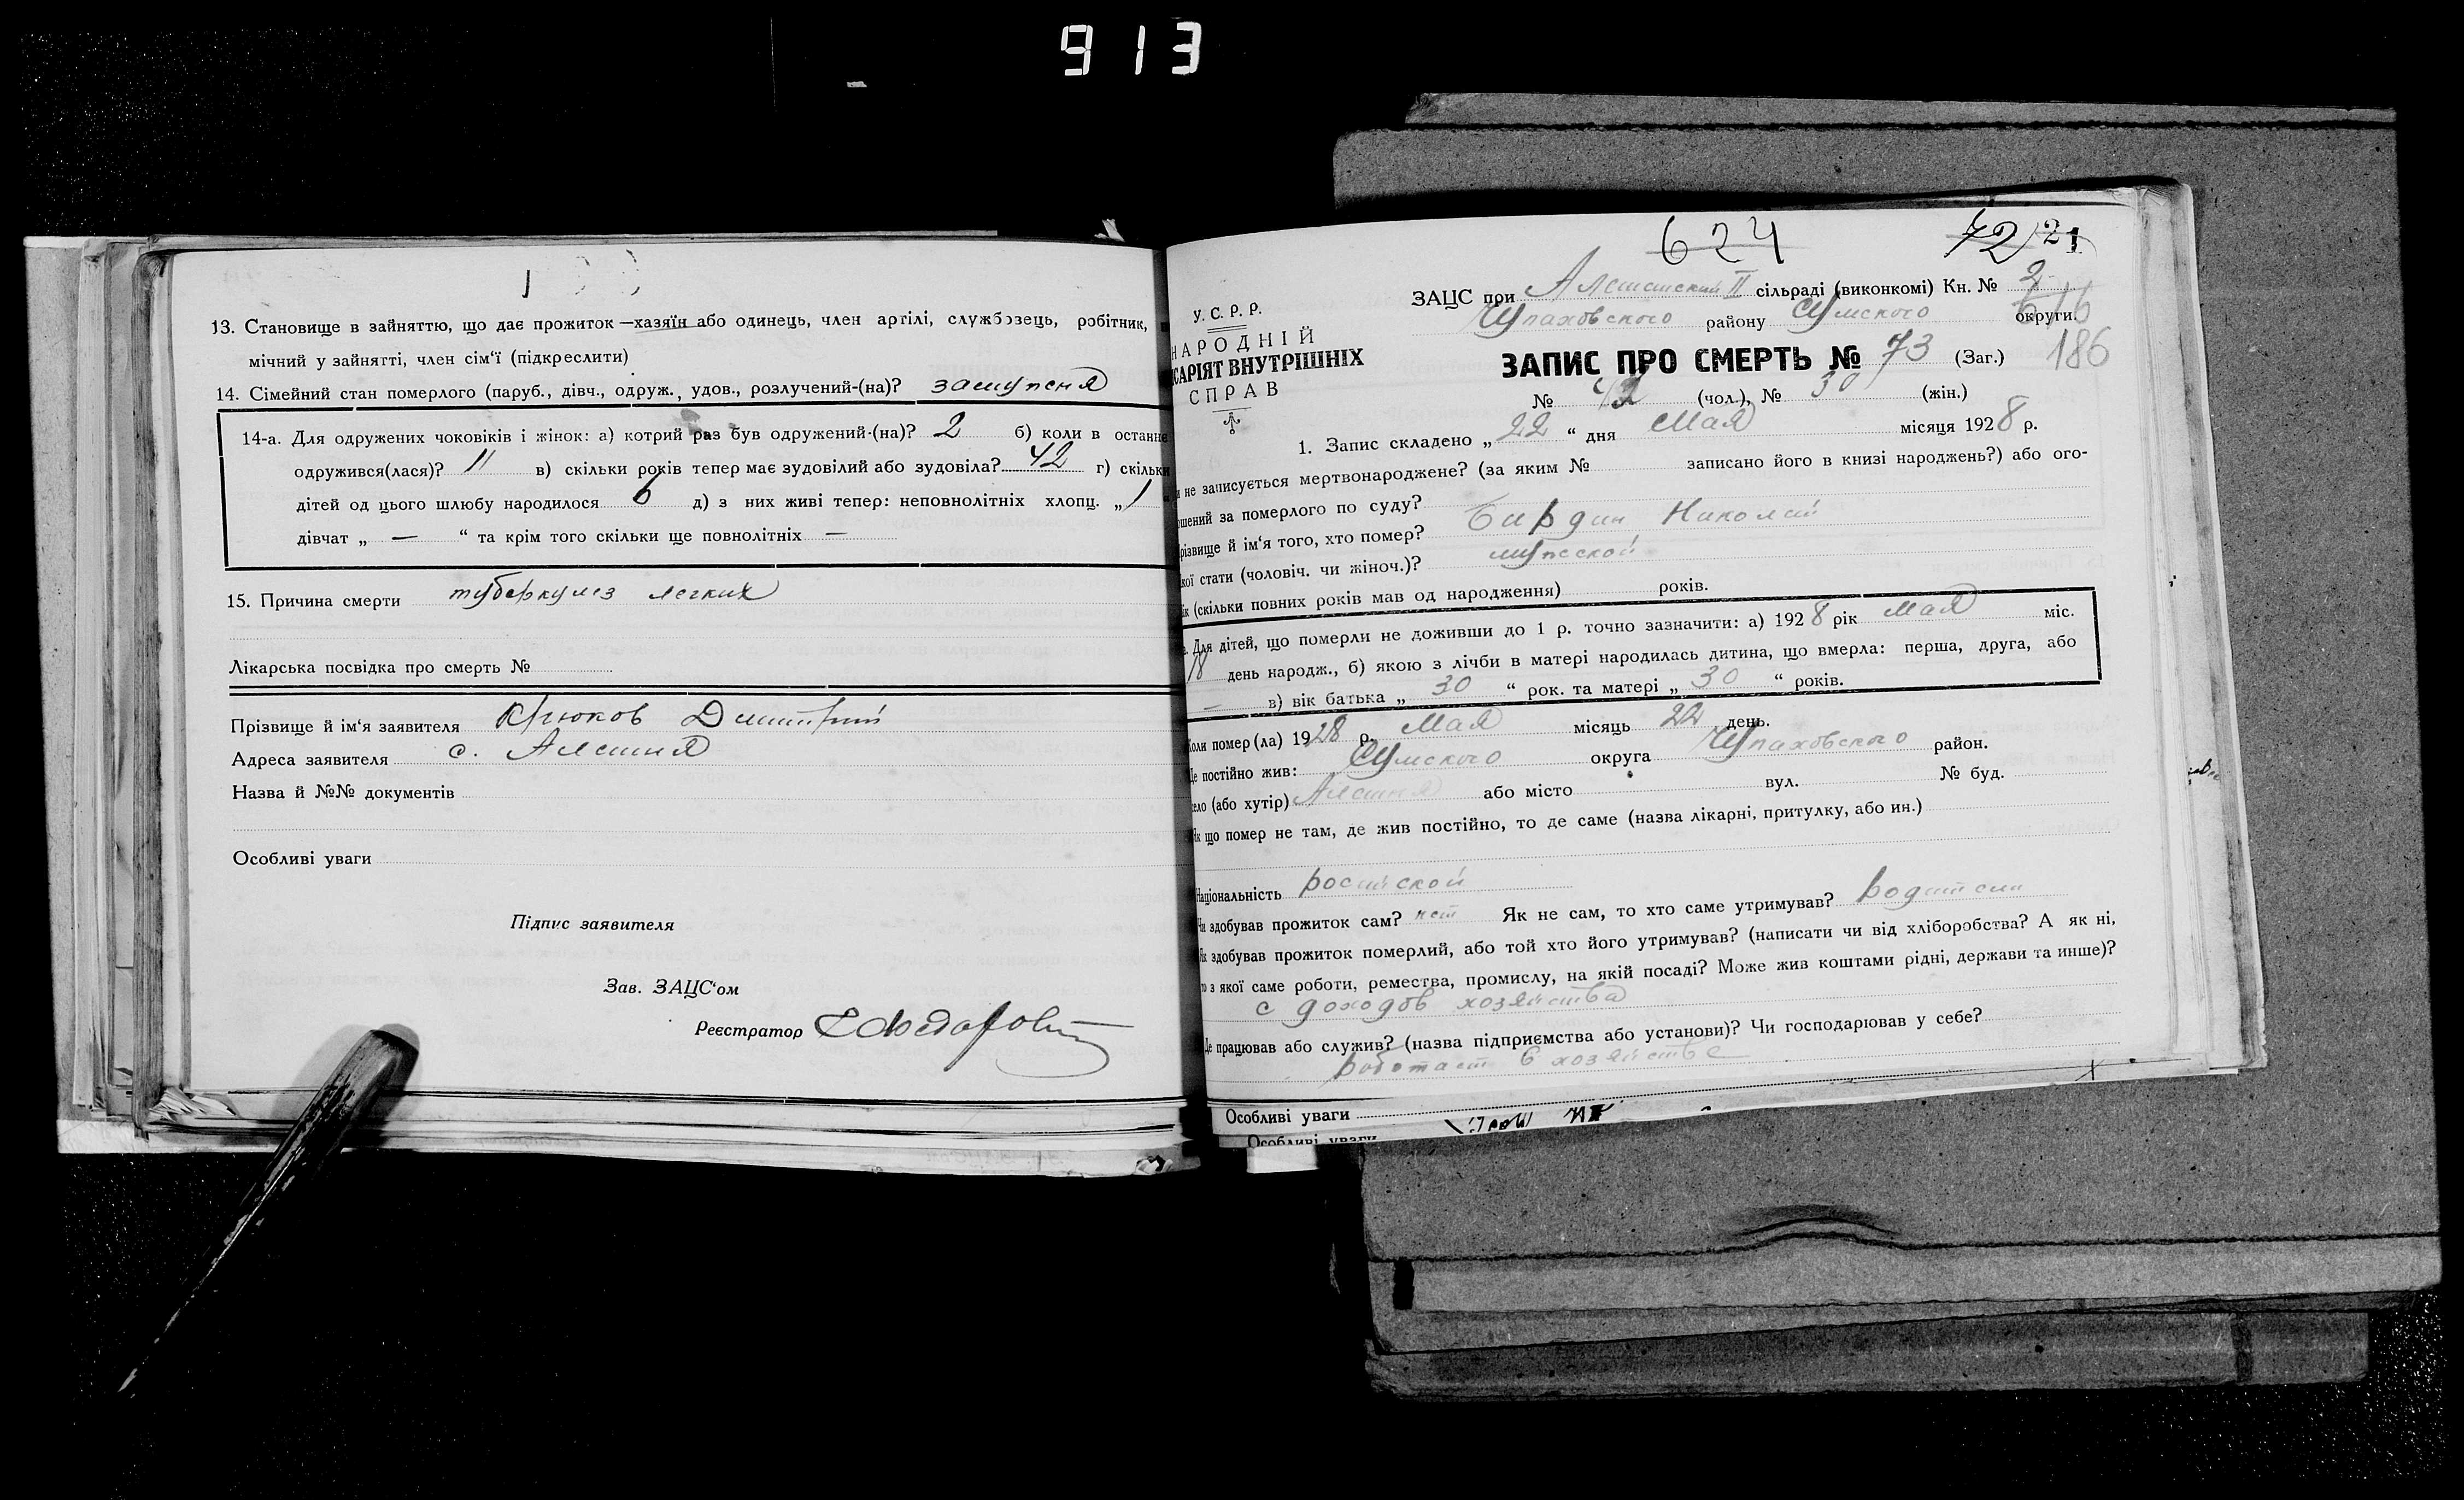 913
13. Становище в зайняттю, що дає прожиток—хазяїн або одинець, член артілі, службовець, робітник,
мічний у зайнятті, член сім'ї (підкреслити)
14. Сімейний стан померлого (паруб., дівч., одруж., удов., розлучений-(на)? замужня
14-а. Для одружених чоковіків і жінок: а) котрий раз був одружений-(на)? 2 б) коли в останнє
одружився(лася)? 11 в) скільки років тепер має зудовілий або зудовіла? 42 г) скільки
дітей од цього шлюбу народилося 6 д) з них живі тепер: неповнолітніх хлопц. „1
дівчат „ — “ та крім того скільки ще повнолітніх —
15. Причина смерти туберкулез легких
Лікарська посвідка про смерть №
Прізвище й ім'я заявителя Крюков Дмитрий
Адреса заявителя с. Алешня
Назва й №№ документів
Особливі уваги
Підпис заявителя
Зав. ЗАЦС'ом
Реєстратор
624 72 21
У. С. Р. Р.
НАРОДНІЙ
САРІЯТ ВНУТРІШНІХ
СПРАВ
ЗАЦС при Алешанский II сільраді (виконкомі) Кн. № 2
Чупаховского району Сумского округи. 616
ЗАПИС ПРО СМЕРТЬ № 73 (Заг.) 186
№ 42 (чол.), № 30 (жін.)
1. Запис складено „22“ дня Мая місяця 1928 р.
и не записується мертвонароджене? (за яким № записано його в книзі народжень?) або ого-
ошений за померлого по суду?
різвище й ім'я того, хто помер? Бирдин Николай
кої стати (чоловіч. чи жіноч.)? мужской
ік (скільки повних років мав од народження) років.
Для дітей, що померли не доживши до 1 р. точно зазначити: а) 1928 рік Мая міс.
18 день народж., б) якою з лічби в матері народилась дитина, що вмерла: перша, друга, або
— в) вік батька „30“ рок. та матері „30“ років.
Коли помер (ла) 1928 р. Мая місяць 22 день.
Де постійно жив: Сумского округа Чупаховского район.
ело (або хутір) Алешня або місто вул. № буд.
Як що помер не там, де жив постійно, то де саме (назва лікарні, притулку, або ин.)
Національність росийской
Чи здобував прожиток сам? нет Як не сам, то хто саме утримував? родители
Як здобував прожиток померлий, або той хто його утримував? (написати чи від хліборобства? А як ні,
то з якої саме роботи, ремества, промислу, на якій посаді? Може жив коштами рідні, держави та инше)?
с доходов хозяйства
Де працював або служив? (назва підприємства або установи)? Чи господарював у себе?
работает в хозяйстве
Особливі уваги
Особливі уваги